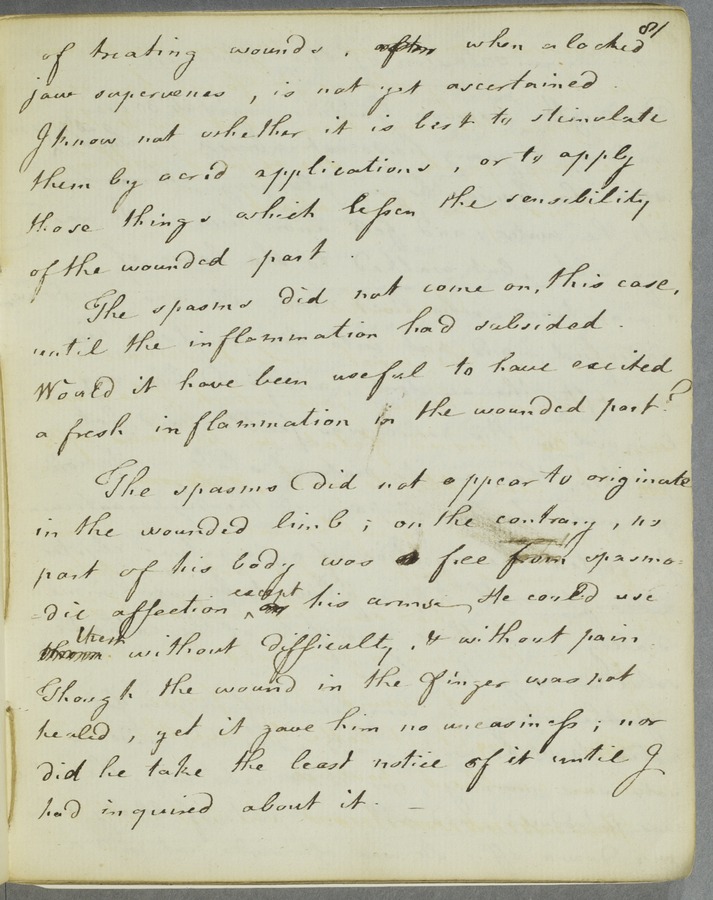 81
of treating wounds, after when a locked
jaw supervenes, is not yet ascertained.
I know not whether it is best to stimulate
them by acrid applications, or to apply
those things which lessen the sensibility
of the wounded part.
The spasms did not come on, this case,
until the inflammation had subsided.
Would it have been useful to have excited
a fresh inflammation in the wounded part?
The spasms did not appear to originate
in the wounded limb; on the contrary, no
part of his body was free from spasmo=
=dic affection except his arms. He could use
these without difficulty, & without pain.
Though the wound in the finger was not
healed, yet it gave him no uneasiness; nor
did he take the least notice of it until I
had inquired about it. —